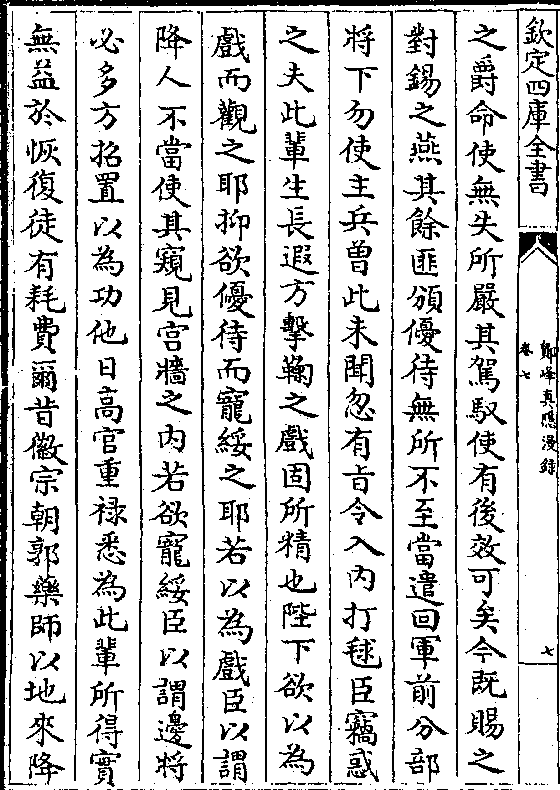 欽定四庫全書
鄮峰真隱漫録
卷七
七
之爵命使無失所嚴其駕馭使有後效可矣今既賜之
對錫之燕其餘匪頒優待無所不至當遣回軍前分部
將下勿使主兵曾此未聞忽有㫖令入内打毬臣竊惑
之夫此輩生長遐方擊鞠之戲固所精也陛下欲以為
戲而觀之耶抑欲優待而寵綏之耶若以為戲臣以謂
降人不當使其窺見宫牆之内若欲寵綏臣以謂邊將
必多方招置以為功他日高官重禄悉為此輩所得實
無益於恢復徒有耗費爾昔徽宗朝郭藥師以地來降